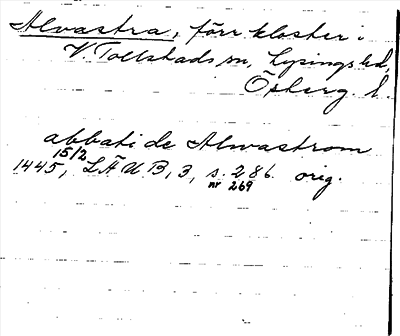 Alvastra, förr kloster i
V. Tollstads sn, Lysings hd,
Österg. l.
abbati de Alwastrom
15/2
1445, LÄUB, 3, s. 286. orig.
nr 269